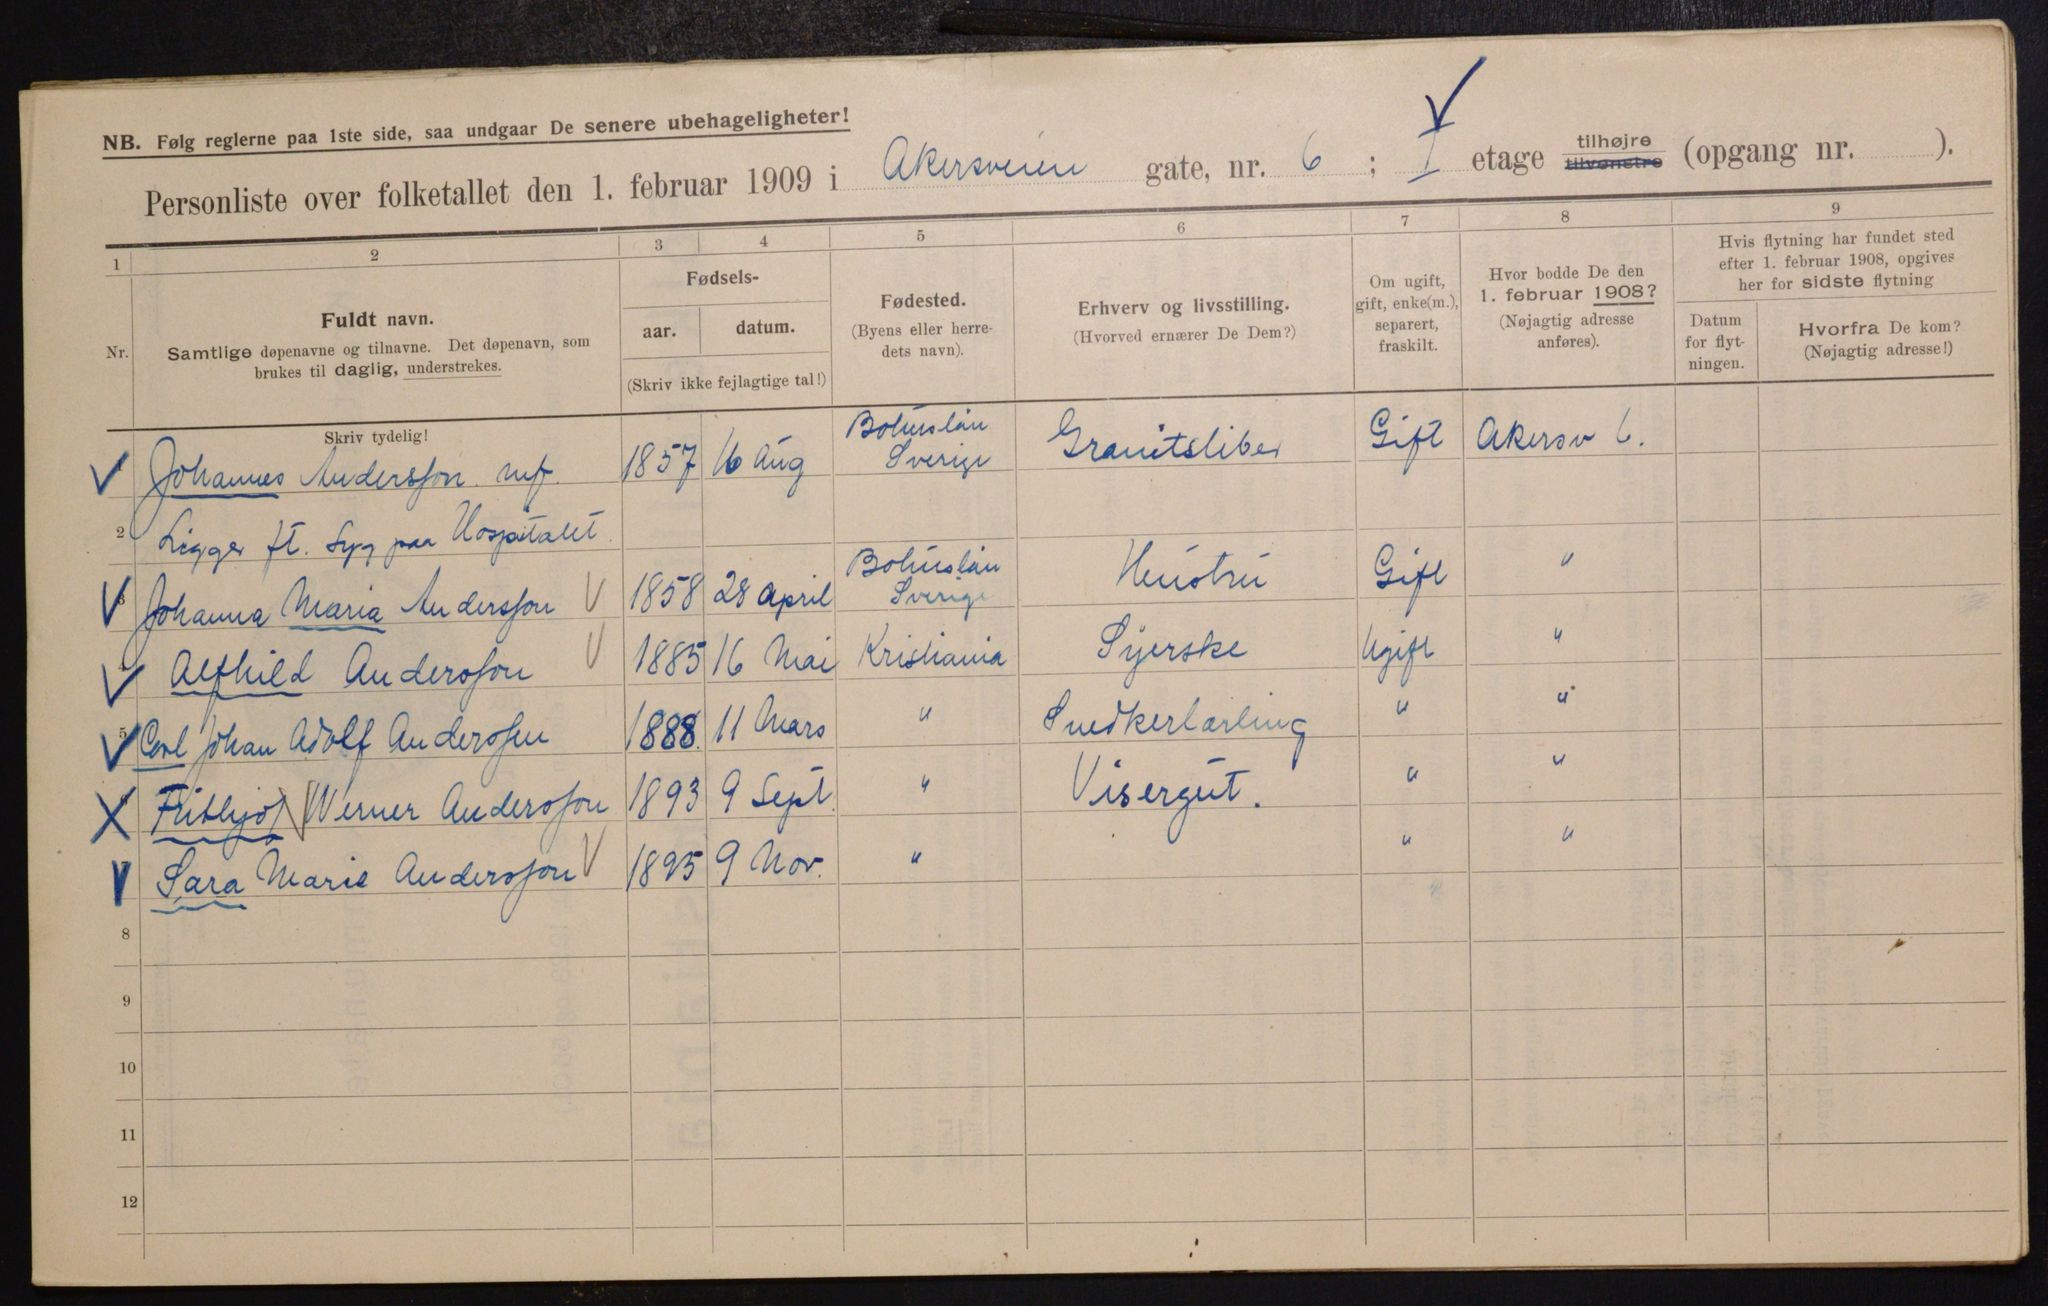 NB. Følg reglerne paa 1ste side, saa undgaar De senere ubehageligheter!
Personliste over folketallet den 1. februar 1909 i Akersveien gate, nr. 6 ; I etage tilhøjre tilvenstre (opgang nr. ).
1 2 3 4 5 6 7 8 9
Nr.
Fuldt navn.
Samtlige døpenavne og tilnavne. Det døpenavn, som
brukes til daglig, understrekes.
Fødsels-
aar. datum.
(Skriv ikke fejlagtige tal!)
Fødested.
(Byens eller herre-
dets navn).
Erhverv og livsstilling.
(Hvorved ernærer De Dem?)
Om ugift,
gift, enke(m.),
separert,
fraskilt.
Hvor bodde De den
1. februar 1908?
(Nøjagtig adresse
anføres).
Hvis flytning har fundet sted
efter 1. februar 1908, opgives
her for sidste flytning
Datum
for flyt-
ningen.
Hvorfra De kom?
(Nøjagtig adresse!)
Skriv tydelig!
Johannes Andersson 1857 16 Aug Bohuslän Sverige Granitsliber Gift Akersv 6.
2 Ligger ft. syg paa Hospitalet.
3 Johanna Maria Andersson 1858 28 April Bohuslän Sverige Hustru Gift "
Alfhild Andersson 1885 16 Mai Kristiania Syerske Ugift "
5 Carl Johan Adolf Andersson 1888. 11 Mars " Snedkerlærling " "
Frithjof Werner Andersson 1893 9 Sept. " Visergut. " "
Sara Marie Andersson 1895 9 Nov. " " "
8
9
10
11
12